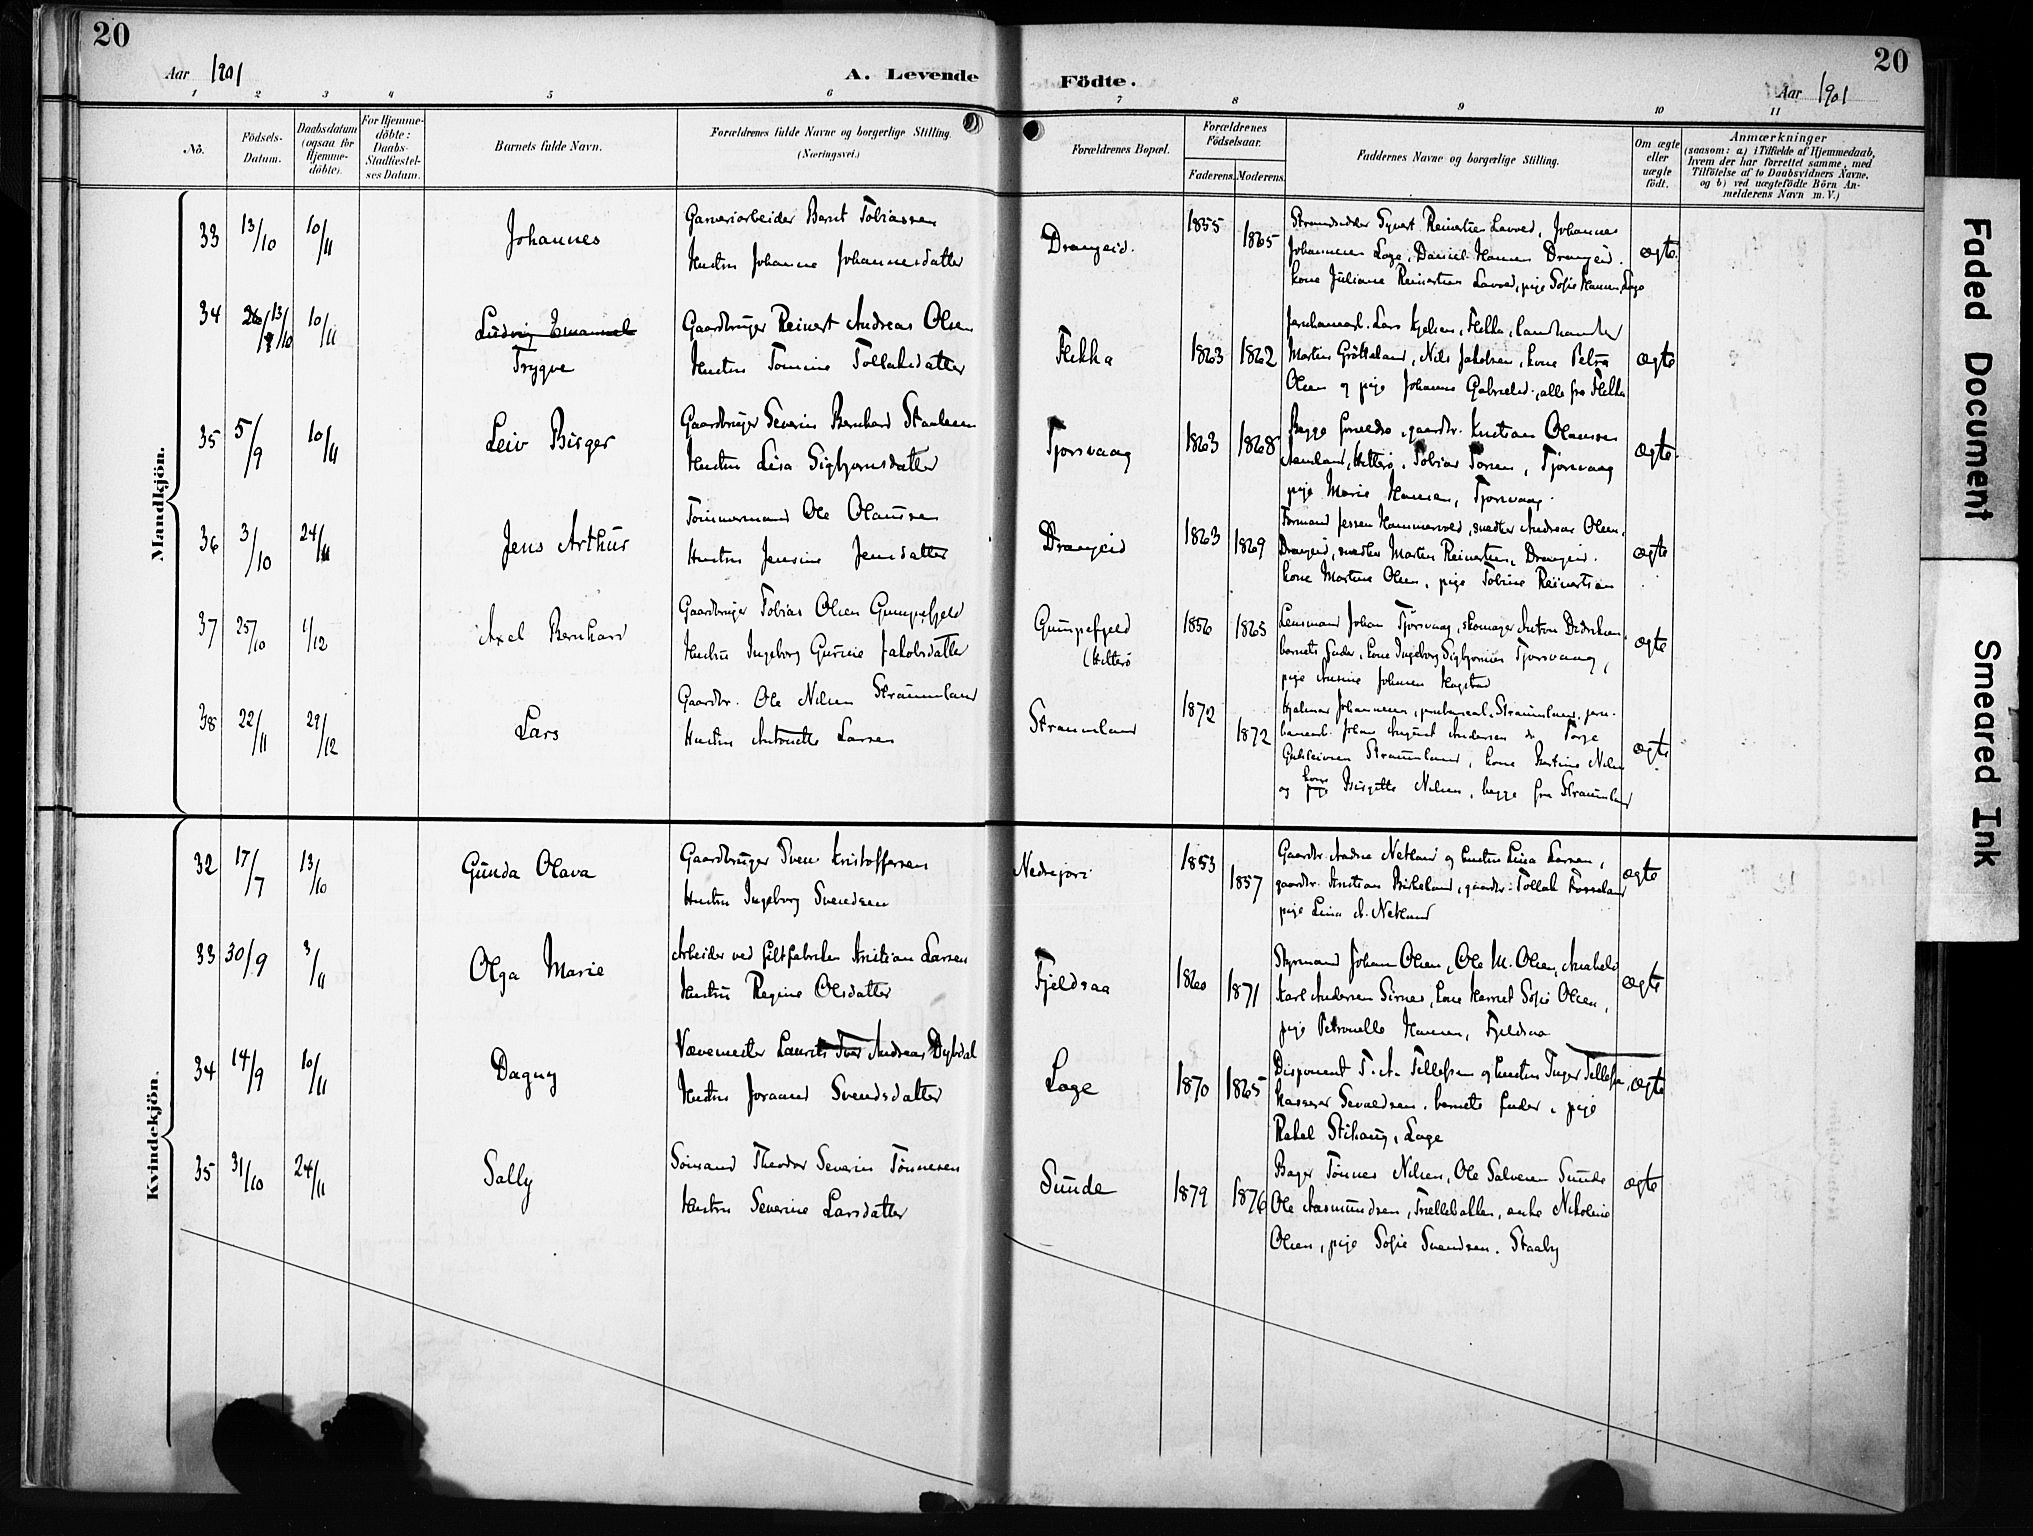 20
Aar 1901
A. Levende Födte.
Aar 1901
20
1 2 3 4 5 6 7 8 9 10 11
Nö.
Födsels-Datum.
Daabsdatum (ogsaa for Hjemme-döbte).
For Hjemme-döbte: Daabs-Stadfæstel-ses Datum.
Barnets fulde Navn.
Forældrenes fulde Navne og borgerlige Stilling. (Næringsvei.)
Forældrenes Bopæl.
Forældrenes Födselsaar.
Faderens. Moderens.
Faddernes Navne og borgerlige Stilling.
Om ægte eller uægte födt.
Anmærkninger
(saasom: a) i Tilfælde af Hjemmedaab,
hvem der har forrettet samme, med
Tilföielse af to Daabsvidners Navne.
og b) ved uægtefödte Börn An-
melderens Navn m. V.)
Mandkjön.
33 13/10 10/11 Johannes
Garveriarbeider Bernt Tobiassen
Hustru Johanne Johannesdatter
Drangeid. 1855 1865
Sigvart Reinertsen Lavold, Johannes
Johannesen Loge, Daniel Hansen Drangeid.
kone Juliane Reinertsen Lavold, pige Sofie Hansen, Loge
ægte.
34 13/10 10/11 Ludvig Emanuel
Trygve
Gaardbruger Reinert Andreas Olsen
Hustru Tomine Tollaksdatter
Flikka 1863 1862
Lars Kjelsen, Flikka, landhandler
Martin Grötteland, Nils Jakobsen, kone Petra
Olsen og pige Johanne Gabrielsd., alle fra Flikka
ægte
35 5/9 10/11 Leiv Birger
Gaardbruger Severin Bernhard Staalesen
Hustru Lisa Sigbjørnsdatter
Tjorsvaag 1863 1868
Begge forældre, gaardbr. Kristian Olaussen
Hitterø, Tobias Torsen, Tjorsvaag
pige Marie Hansen, Tjorsvaag.
ægte.
36 3/10 24/11 Jens Arthur
Tømmermand Ole Olaussen
Hustru Jensine Jensdatter
Drangeid 1863 1869
Formand Jessen Hammersved, snedker Andreas Olsen,
Drangeid, snedker Martin Reinertsen, Drangeid.
kone Martine Olsen, pige Tobine Reinertsen
ægte
37 25/10 1/12 Axel Bernhard
Gaardbruger Tobias Olsen Gumpefjeld
Hustru Ingeborg Gurine Jakobsdatter
Gumpefjeld
(Hitterø
1856 1863
Lensmand Johan Tjorsvaag, skomager Anton Didriksen,
barnets fader, kone Ingeborg Sigbjørnsen Tjorsvaag,
pige Johnsen Hagestad
ægte
38 22/11 29/12 Lars
Gaardbr. Ole Nilsen Straumland
Hustru Antonette Larsen
Straumland 1872 1872
Hjalmar Johannesen, Straumland, jern-
banearb. Johan August Andersen do Torje
Straumland, kone Martine Nilsen
og kone pige Birgitte Nilsen, begge fra Straumland
ægte
Kvindekjön.
32 17/7 13/10 Gunda Olava
Gaardbruger Sven Kristoffersen
Hustru Ingeborg Svendsen
Nedrejord 1853 1857
Gaardbr. Andrea Netland og hustru Lina Larsen,
gaardbr. Kristian Birkeland, gaardbr. Tollak Fosseland
pige Lina A. Netland
ægte
33 30/9 3/11 Olga Marie
Arbeider ved filtfabriken Kristian Larsen
Hustru Regine Olsdatter
Fjeldsaa 1860 1871
Styrmand Johan Olsen, Ole M. Olsen, Anabeløe
Karl Andersen Sirnes, kone Harriet Sofie Olsen,
pige Petronelle Hansen, Fjeldsaa
ægte
34 14/9 10/11 Dagny
Vævemester Laurits Andreas Dybdal
Hustru Jorand Svendsdatter
Loge 1870 1865
Disponent T. A. Tellefsen og hustru Inger Tellefsen,
Kasserer Sevaldsen, barnets fader, pige
Rakel Stihaug, Loge
ægte
35 31/10 24/11 Sally
Sømand Theodor Severin Tønnesen
Hustru Severine Larsdatter
Sunde 1879 1876
Bager Tønnes Nilsen, Ole Salvesen Sunde
Ole Aasmundsen, Trælleballen, enke Nikoline
Olsen, pige Sofie Svendsen. Staaby
ægte
Faded Document
Smeared Ink